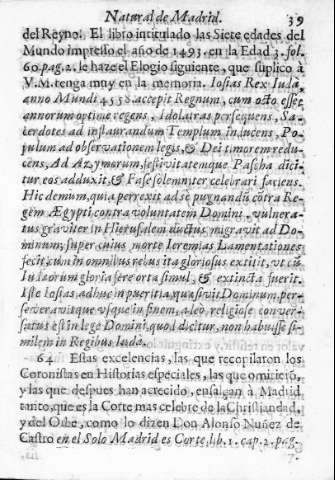 Natural de Madrid. 39
del Reyno. El libro intitulado las Siete edades del
Mundo impresso el año de 1493. en la Edad 3. fol.
60. pag. 2. le haze el Elogio siguiente, que suplico à
V. M. tenga muy en la memoria. Iosias Rex Iuda,
anno Mundi 4558. accepit Regnum, cum octo esset
annorum optime regens, Idolatras persequens, Sa-
cerdotes ad instaurandum Templum inducens, Po-
pulum ad observationem legis, & Dei timorem redu-
cens, Ad Azymorum, festivitatemque Pascha dici-
tur eos adduxit, & Fase solemniter celebrari faciens.
Hic demum, quia perrexit ad se pugnandū cōtra Re-
gem Ægypti contra voluntatem Domini, vulnera-
tus graviter in Hierusalem ductus migravit ad Do-
minum, super cuius morte Ieremias Lamentationes
fecit, cum in omnibus rebus ita gloriosus extitit, vt cū
Iudaorum gloria fere orta simul, & extincta fuerit.
Iste Iosias, adhuc in pueritia, quasivit Dominum, per-
severavitque vsque in finem, adeo, religiose conver-
satus est in lege Domini, quod dicitur, non habuisse si-
milem in Regibus Iuda.
64 Estas excelencias, las que recopilaron los
Coronistas en Historias especiales, las que omitierō,
y las que despues han acrecido, ensalçan à Madrid
tanto, que es la Corte mas celebre de la Christiandad,
y del Orbe, como lo dizen Don Alonso Nuñez de
Castro en el Solo Madrid es Corte, lib. 1. cap. 2. pag.
7.